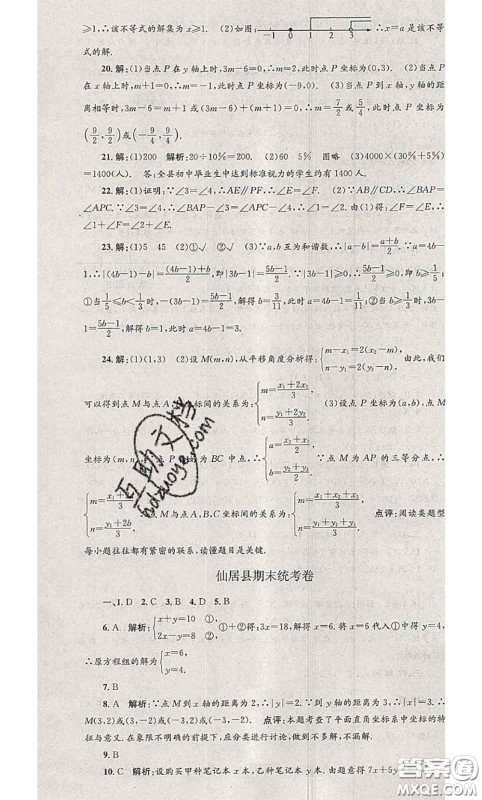 ≥1,∴该不等式的解集为x≥1. (2)如图: -1 0 1 2 3 ∴x=a是该不等
式的解.
20. 解:(1)当点P在y轴上时,3m-6=0,∴m=2,此时点P坐标为(0,3). (2)当点P
在x轴上时,m+1=0,∴m=-1,此时点P坐标为(-9,0). (3)当点P到x轴、y轴的距
离相等时,3m-6=m+1或(3m-6)+(m+1)=0,解得:m=7/2或5/4,此时点P坐标为
(9/2,9/2)或(-9/4,9/4).
21. 解:(1)200 解析:20÷10%=200. (2)60 5% 图略 (3)4000×(30%+5%)
=1400(人). 答:全县初中毕业生中达到标准视力的学生约有1400人.
22. 解:(1)证明:∵∠3=∠4,∴AE∥PF,∴∠E=∠F. (2)∵AB∥CD,∴∠BAP=
∠APC. ∵∠1=∠2,∴∠3=∠4,∴AE∥PF,∴∠E=∠F. (3)由(1)得:∠F=∠E=
∠4=∠3,∴∠BAP=∠APC,∴∠1=∠2.
23. 解:(1)5 45 (2)①√ ②√ (3)∵a,b互为和谐数,∴|a-b|=(a+b)/2. ∵a=4b-
1,∴|(4b-1)-b|=((4b-1)+b)/2,即|3b-1|=(5b-1)/2. ∵|3b-1|≥0,∴(5b-1)/2≥0,∴b≥1/5;
①当1/5≤b<1/3时,则1-3b=(5b-1)/2,解得b=3/11,此时a=4b-1=1/11;②当b≥1/3时,则3b-
1=(5b-1)/2,解得b=1,此时a=4b-1=3.
24. 解:(1)(1,3) (2)设M(m,n),从平移角度分析得:{m-x₁=2(x₂-m), n-y₁=2(y₂-m). 由此,我们
可以得到点M与点A,B坐标间的关系为:{m=(x₁+2x₂)/3, n=(y₁+2y₂)/3. (3)设点P坐标为(a,b),点M
坐标为(m,n) 点P为BC中点,∴ ∵点M为AP的三等分点,∴
{m=(x₁+2a)/3, n=(y₁+2b)/3. ∴点M与点A,B,C坐标间的关系为:{m=(x₁+x₂+x₃)/3, n=(y₁+y₂+y₃)/3. 点评:阅读类题型
每小题往往都有紧密的联系,读懂题目是关键.
仙居县期末统考卷
一、1. D 2. C 3. B 4. D 5. B
6. A 解析:{x+y=10 ① 2x-y=8 ② ①+②得:3x=18,解得x=6. 将x=6代入①中得y=4,
∴原方程组的解为{x=6, y=4.
7. B
8. A 解析:∵点M到x轴的距离为2,∴|y|=2. ∵到y轴的距离为3,∴|x|=3. ∴
M(3,2)或(3,-2)或(-3,2)或(-3,-2). 点评:本题考查了平面直角坐标系中坐标的特
征与意义. 在象限不明确的前提下,应分类讨论,做到不多解,不漏解.
9. B
10. C 解析:设购买甲种笔记本x本,乙种笔记本y本. 由题意得7x+5y
互助文档
hdzuoye.com
答案圈
MXQE.COM